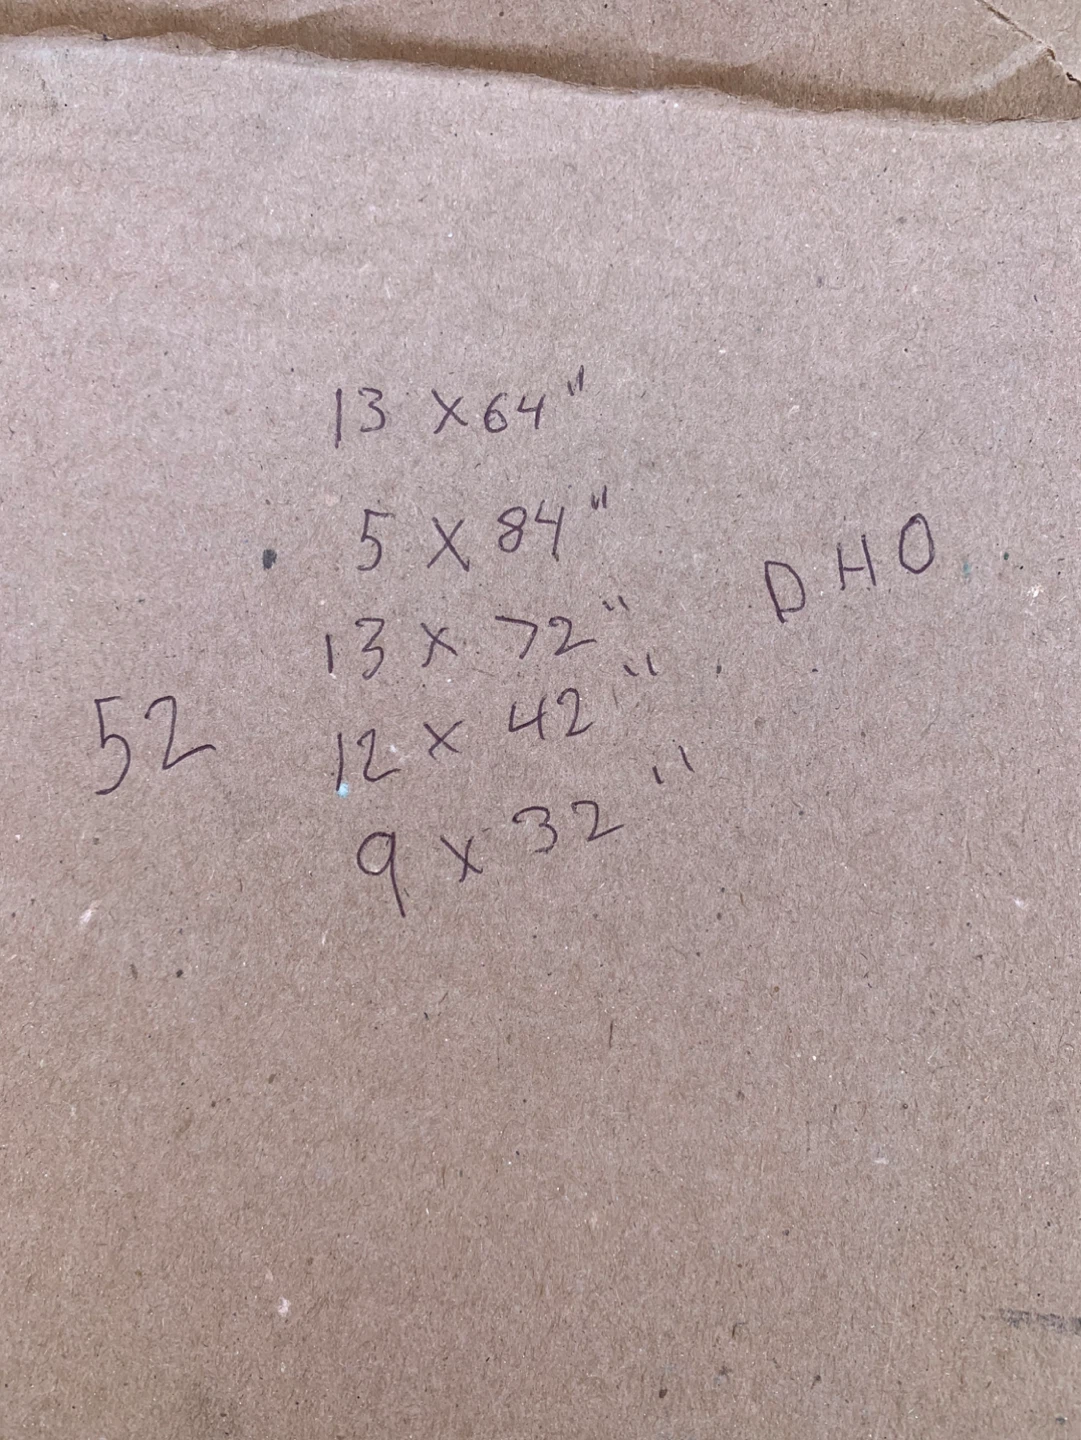 13 x 64"
5 x 84"
DHO
13 x 72"
52
12 x 42"
9 x 32"